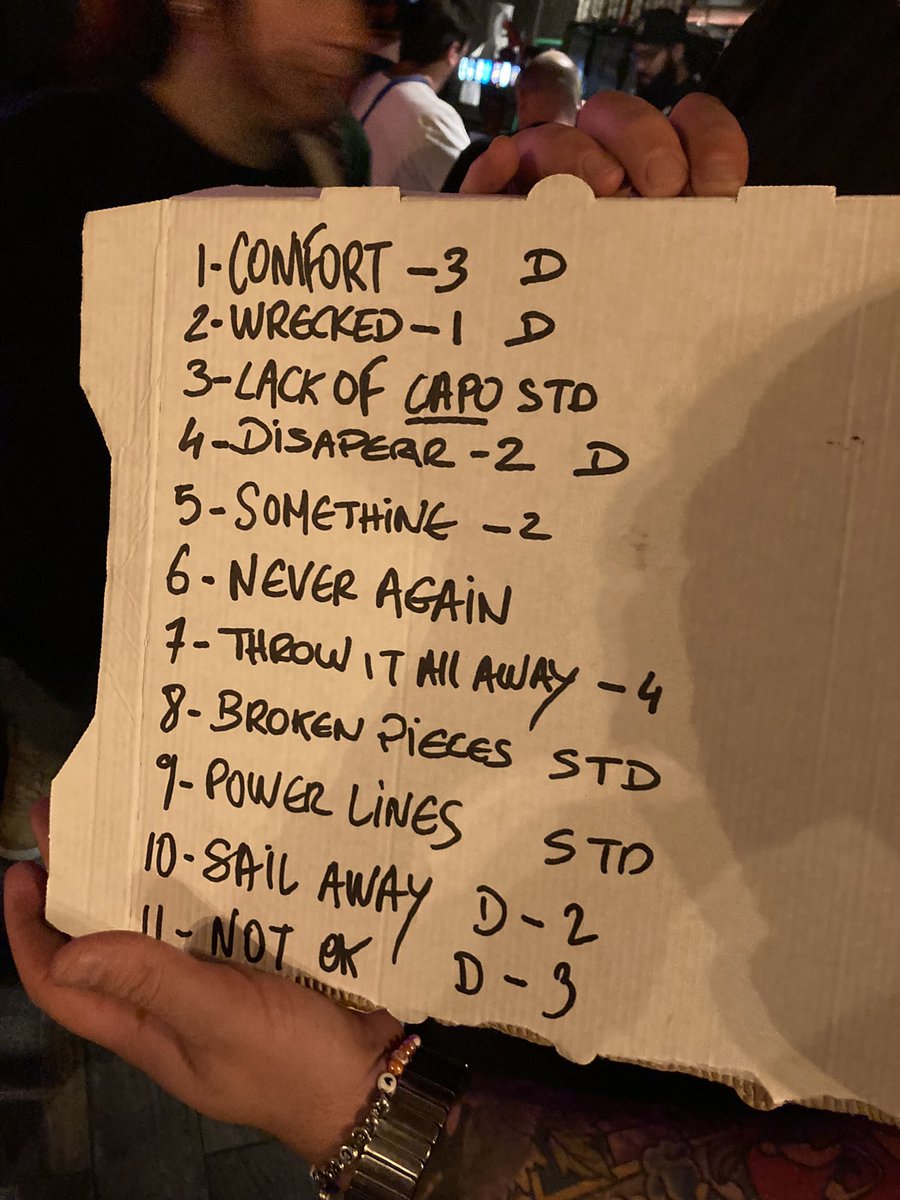 1-COMFORT -3 D
2-WRECKED -1 D
3-LACK OF CAPO STD
4-DiSAPEAR -2 D
5-SOMETHiNE -2
6-NEVER AGAiN
7-THROW IT All AWAY -4
8-BROKEN PiECES STD
9-POWER LiNES STD
10-SAiL AWAY D-2
11-NOT OK D-3